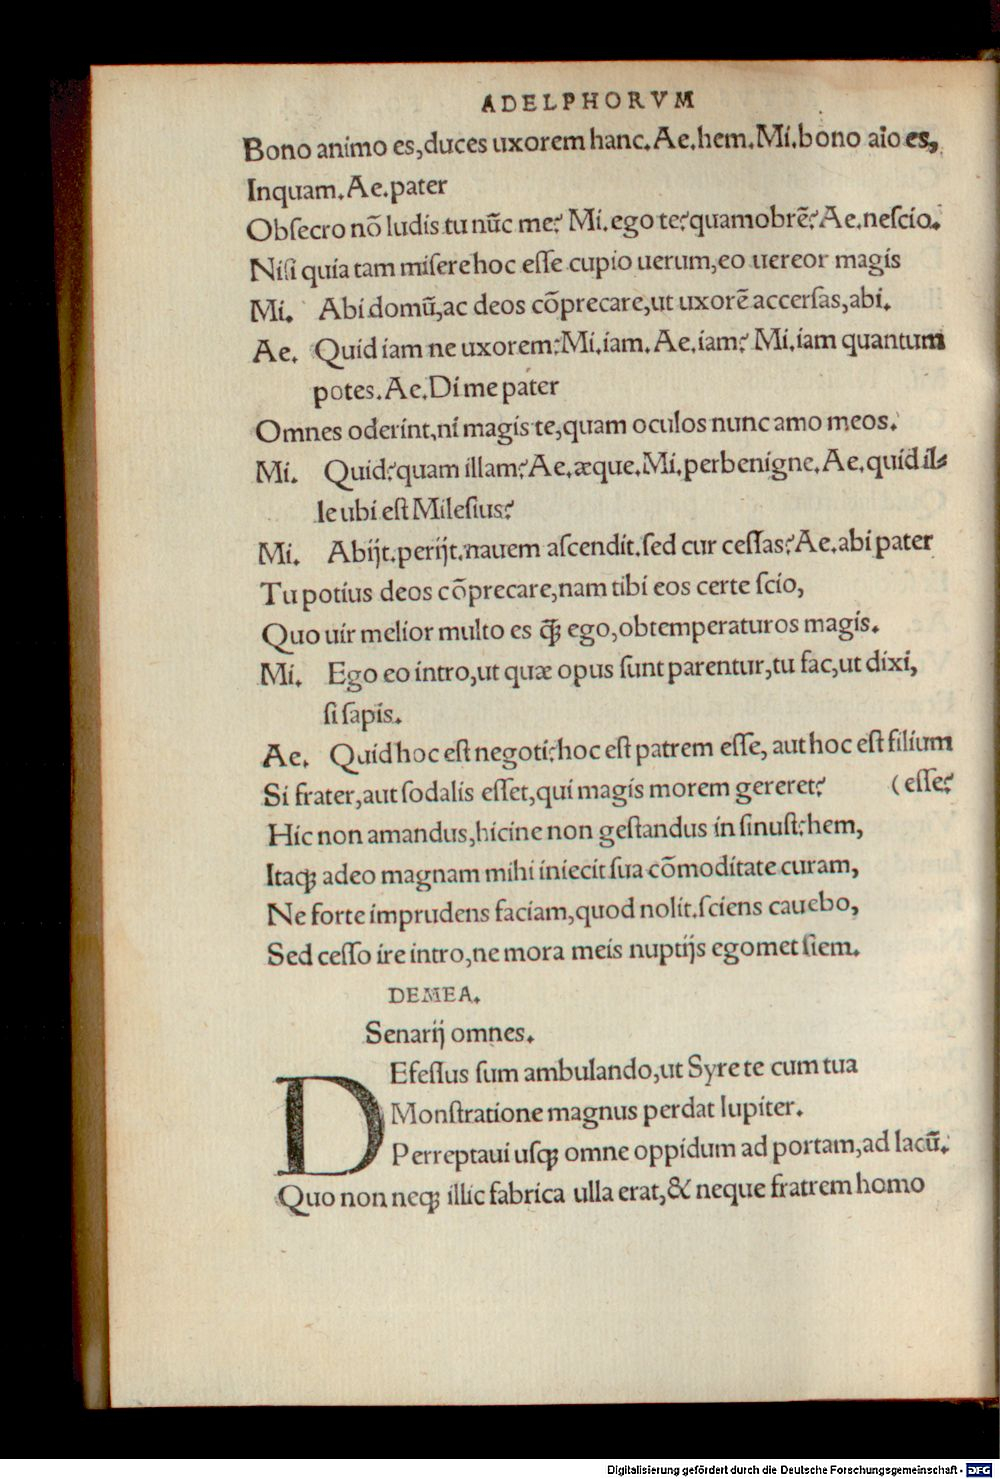 ADELPHORVM
Bono animo es,duces uxorem hanc.Ae.hem.Mi.bono aio es,
Inquam.Ae.pater
Obſecro nõ ludis tu nũc me? Mi.ego te?quamobrẽ?Ae.neſcio.
Niſi quia tam miſere hoc eſſe cupio uerum,eo uereor magis
Mi. Abi domũ,ac deos cõprecare,ut uxorẽ accerſas,abi.
Ae. Quid iam ne uxorem?Mi.iam.Ae.iam? Mi.iam quantum
potes.Ae.Di me pater
Omnes oderint,ni magis te,quam oculos nunc amo meos.
Mi. Quid?quam illam?Ae.æque.Mi.perbenigne.Ae.quid il-
le ubi eſt Mileſius?
Mi. Abijt.perijt.nauem aſcendit.ſed cur ceſſas?Ae.abi pater
Tu potius deos cõprecare,nam tibi eos certe ſcio,
Quo uir melior multo es q̃ꝫ ego,obtemperaturos magis.
Mi. Ego eo intro,ut quæ opus ſunt parentur,tu fac,ut dixi,
ſi ſapis.
Ae. Quid hoc eſt negoti?hoc eſt patrem eſſe, aut hoc eſt filium
Si frater,aut ſodalis eſſet,qui magis morem gereret? (eſſe?
Hic non amandus,hicine non geſtandus in ſinuſt?hem,
Itaqꝫ adeo magnam mihi iniecit ſua cõmoditate curam,
Ne forte imprudens faciam,quod nolit.ſciens cauebo,
Sed ceſſo ire intro,ne mora meis nuptijs egomet ſiem.
DEMEA.
Senarij omnes.
DEfeſſus ſum ambulando,ut Syre te cum tua
Monſtratione magnus perdat Iupiter.
Perreptaui uſqꝫ omne oppidum ad portam,ad lacũ.
Quo non neqꝫ illic fabrica ulla erat,& neque fratrem homo
Digitalisierung gefördert durch die Deutsche Forschungsgemeinschaft - DFG